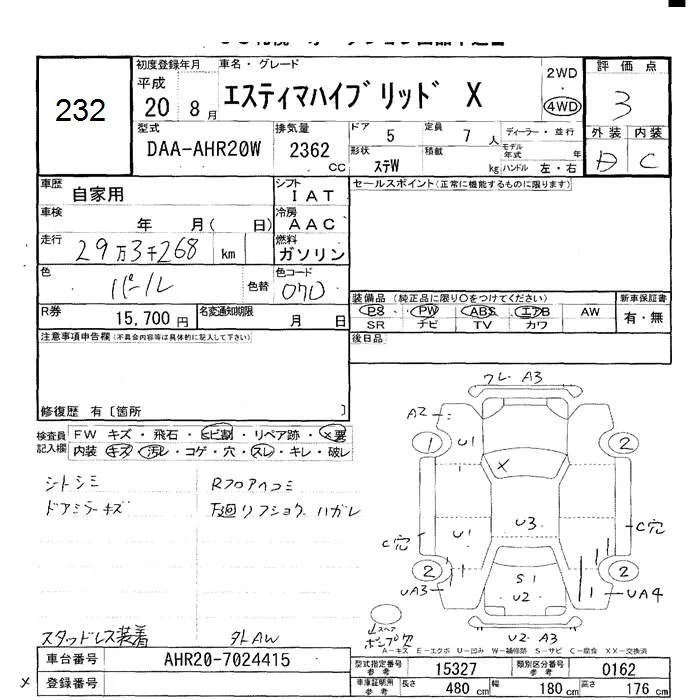 232
初度登録年月 車名・グレード
平成 20 8 月 エスティマハイブリッド X
2WD
4WD
評価点
3
外装 内装
B C
型式 排気量 ドア 定員 ディーラー・並行
DAA-AHR20W 2362 CC 5 7 人
モデル年式 年
形状 ステW 積載 kg ハンドル 左・右
車歴 自家用 シフト IAT
セールスポイント(正常に機能するものに限ります)
車検 年 月( 日) 冷房 AAC
走行 29万3千268 km 燃料 ガソリン
色 パール 色替 色コード 070
装備品(純正品に限り○をつけてください) 新車保証書
PS PW ABS エアB AW 有・無
SR ナビ TV カワ
R券 15,700 円 名変通知期限 月 日
注意事項申告欄(不具合内容等は具体的に記入して下さい)
後日品
修復歴 有〔箇所 〕
検査員記入欄
FW キズ・飛石・ヒビ割・リペア跡・X要
内装 キズ・汚レ・コゲ・穴・スレ・キレ・破レ
シトシミ Rフロアヘコミ
ドアミラーキズ 下廻リフショウ ハガレ
フレ・A3
A2
1 U1 2
X
C穴 U1 U3 C穴
2 S1 2
UA3 U2 UA4
U2・A3
スタッドレス装着 外AW
A-キズ E-エクボ U-凹み W-補修跡 S-サビ C-腐食 XX-交換済
車台番号 AHR20-7024415
型式指定番号参考 15327 類別区分番号参考 0162
X 登録番号
車庫証明用参考 長さ 480 cm 幅 180 cm 高さ 176 cm